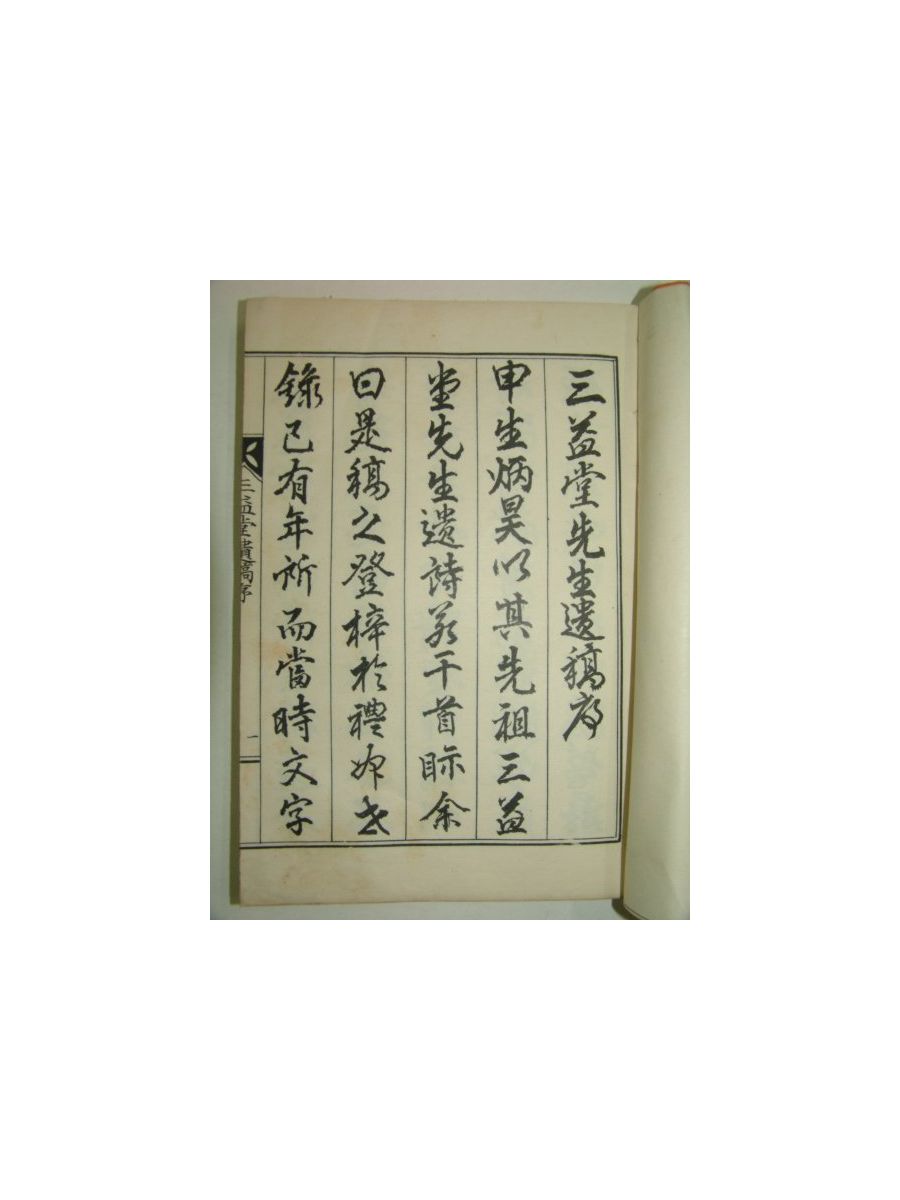 三益堂先生遺稿序
申生炳昊以其先祖三益
堂先生遺詩若干首眎余
曰是稿之登梓於禮
錄已有年所而當時文字
三益堂遺稿序
一